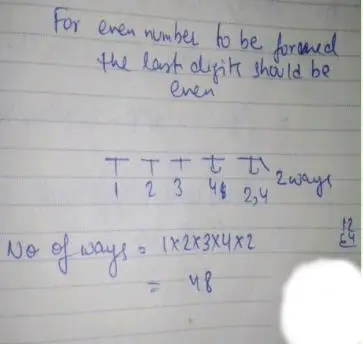 For even number to be formed
the last digits should be
even
1 2 3 4 2,4 2 ways
No of ways = 1x2x3x4x2
= 48
12